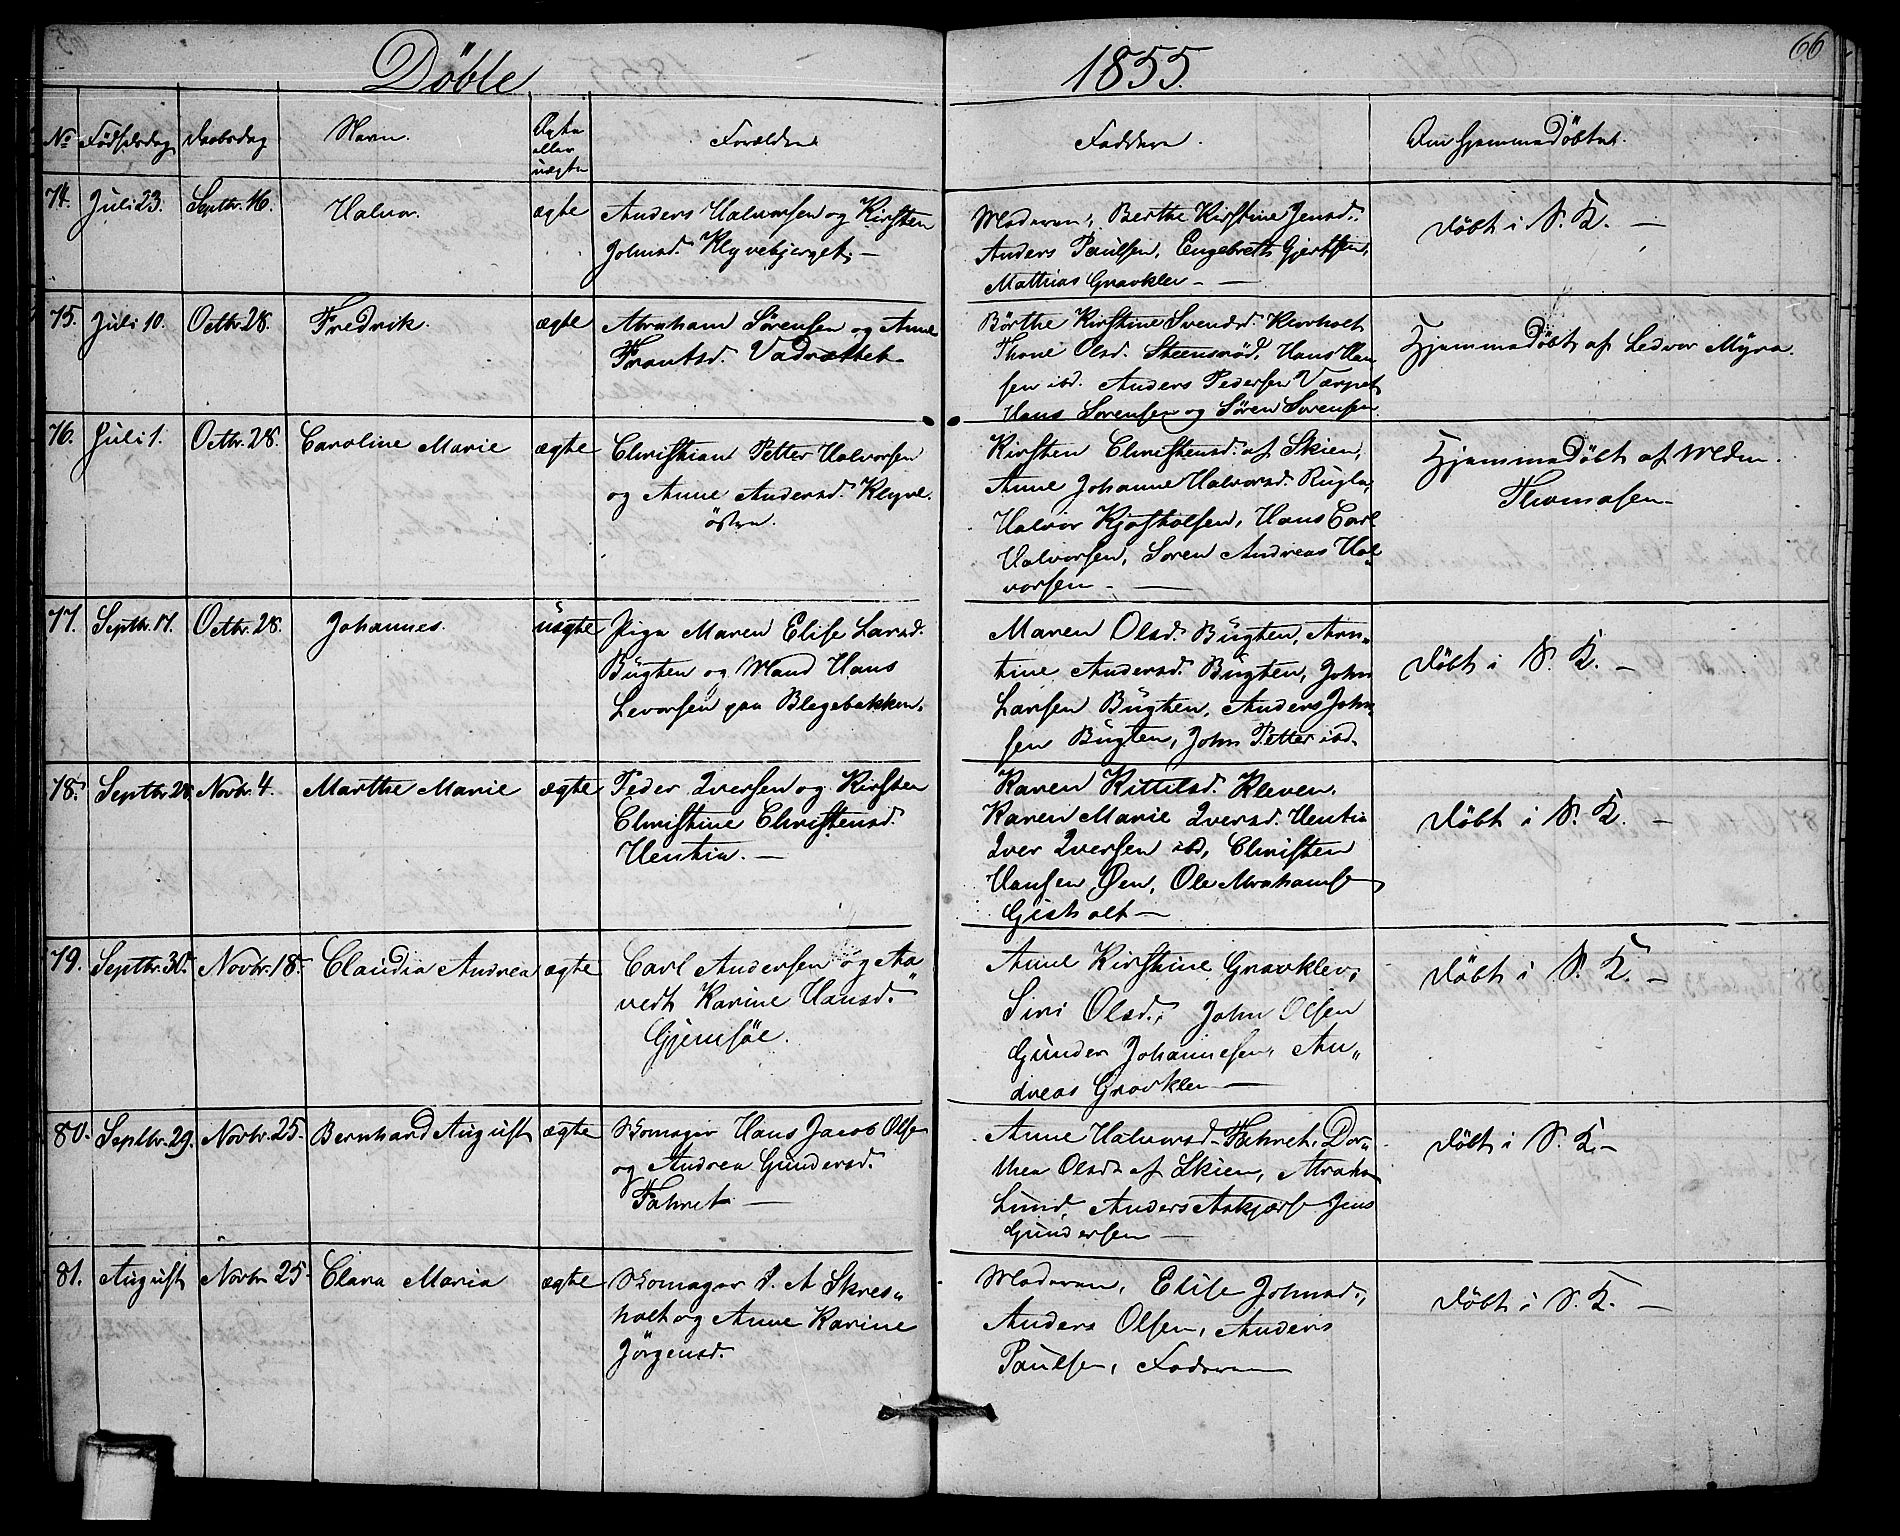 Döbte 1855. 66
No Födselsdag Daabsdag Navn. Ægte eller uægte Forældre Faddere. Om Hjemmedöbt.
74. Juli 23. Septbr. 16. Halvor. ægte
Anders Halvorsen og Kirsten
Johnsd. Klyvebjerget. —
Moderen, Berthe Kirstine Jensd.,
Anders Paulsen, Engebreth Gjertsen,
Mathias Gravklev —
Döbt i S. K. —
75. Juli 10. Octbr. 28. Fredrik. ægte
Abraham Sörensen og Anne
Frantsd. Vadrættet
Börthe Kirstine Svendsd.
Thone Olsd. Steensröd, Hans Han
sen ibd. Anders Pedersen Værpet
Hans Sorensen og Sören Sorensen
Hjemmedöbt af Ledvor Myra.
76. Juli 1. Octbr. 28. Caroline Marie ægte
Christian Petter Halvorsen
og Anne Andersd. Klyve
östre.
Kirsten Christensd. af Skien,
Anne Johanne Halvorsd. Rugla,
Halvor Kjostolsen, Hans Carl
Halvorsen, Soren Andreas Hal„
vorsen —
Hjemmedöbt af Mdm.
Thomasen
77. Septbr. 17. Octbr. 28. Johannes. uægte
Pige Maren Elise Larsd.
Bugten og Mand Hans
Levorsen paa Blegebakken.
Maren Olsd. Bugten, Arn„
tine Andersd. Bugten, John
Larsen Bugten, Anders John„
sen Bugten, John Petter ibd.
Döbt i S. K. —
78. Septbr. 28 Novbr. 4. Marthe Marie ægte
Peder Iversen og Kirsten
Christine Christensd.
Ventia. —
Karen Kittilsd. Kleven.
Karen Marie Iversd. Ventia
Iver Iversen ibd, Christen
Hansen Öen, Ole Abrahams
Gisholt —
Döbt i S. K. —
79. Septbr. 30. Novbr. 18. Claudia Andrea ægte
Carl Andersen og Aa„
vedt Karine Hansd.
Gjemsöe.
Anne Kirstine Gravklev,
Siri Olsd., John Olsen
Gunder Johannesen, An„
dreas Gravklev —
Döbt i S. K. —
80. Septbr. 29. Novbr. 25. Bernhard August ægte
Skomager Hans Jacob Olse
og Andrea Gundersd.
Fahret —
Anne Halvorsd. Fahret, Dor„
thea Olsd. af Skien, Abraha
Lund, Anders Askjærs Jens
Gundersen —
Döbt i S. K. —
81. August Novbr. 25. Clara Maria ægte
Skomager P. A Skres„
holt og Anne Karine
Jörgensd.
Moderen, Elise Johnsd.,
Anders Olsen, Anders
Paulsen, Faderen
Döbt i S. K. —